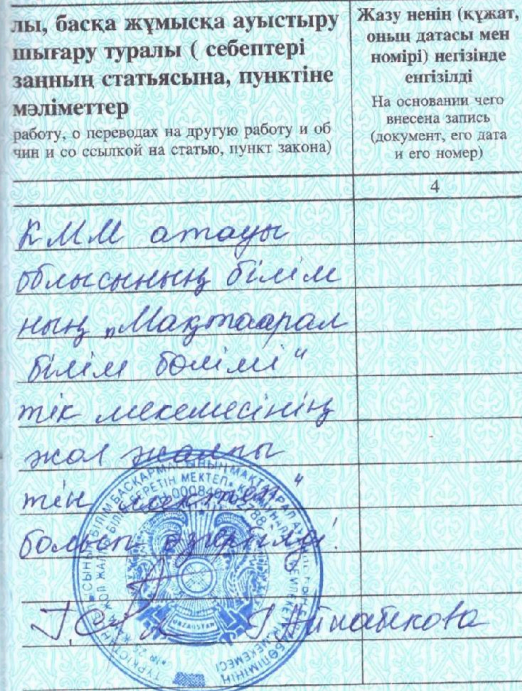 лы, басқа жұмысқа ауыстыру
шығару туралы ( себептері
заңның статьясына, пунктіне
мәліметтер
работу, о переводах на другую работу и об
чин и со ссылкой на статью, пункт закона)
Жазу ненің (құжат,
оның датасы мен
нөмірі) негізінде
енгізілді
На основании чего
внесена запись
(документ, его дата
и его номер)
4
КММ атауы
облысының білім
ның „Мақтаарал
білім бөлімі"
тік мекемесінің
жол жалпы
тін мектеп"
болып өзгертілді.